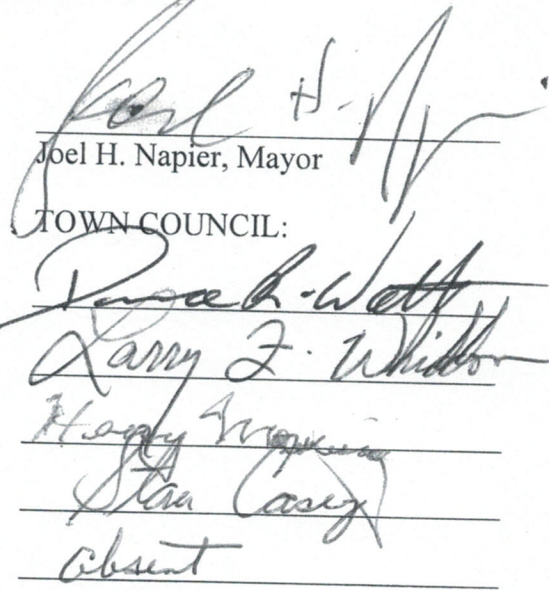 Joel H. Napier
Joel H. Napier, Mayor
TOWN COUNCIL:
R. Watt
Larry F. Whidbon
Henry
Stan Casey
absent